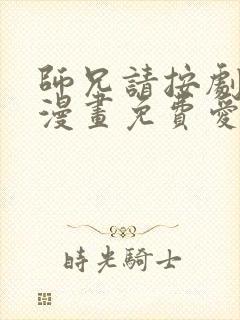 師兄請按劇
漫畫免費愛
時光騎士